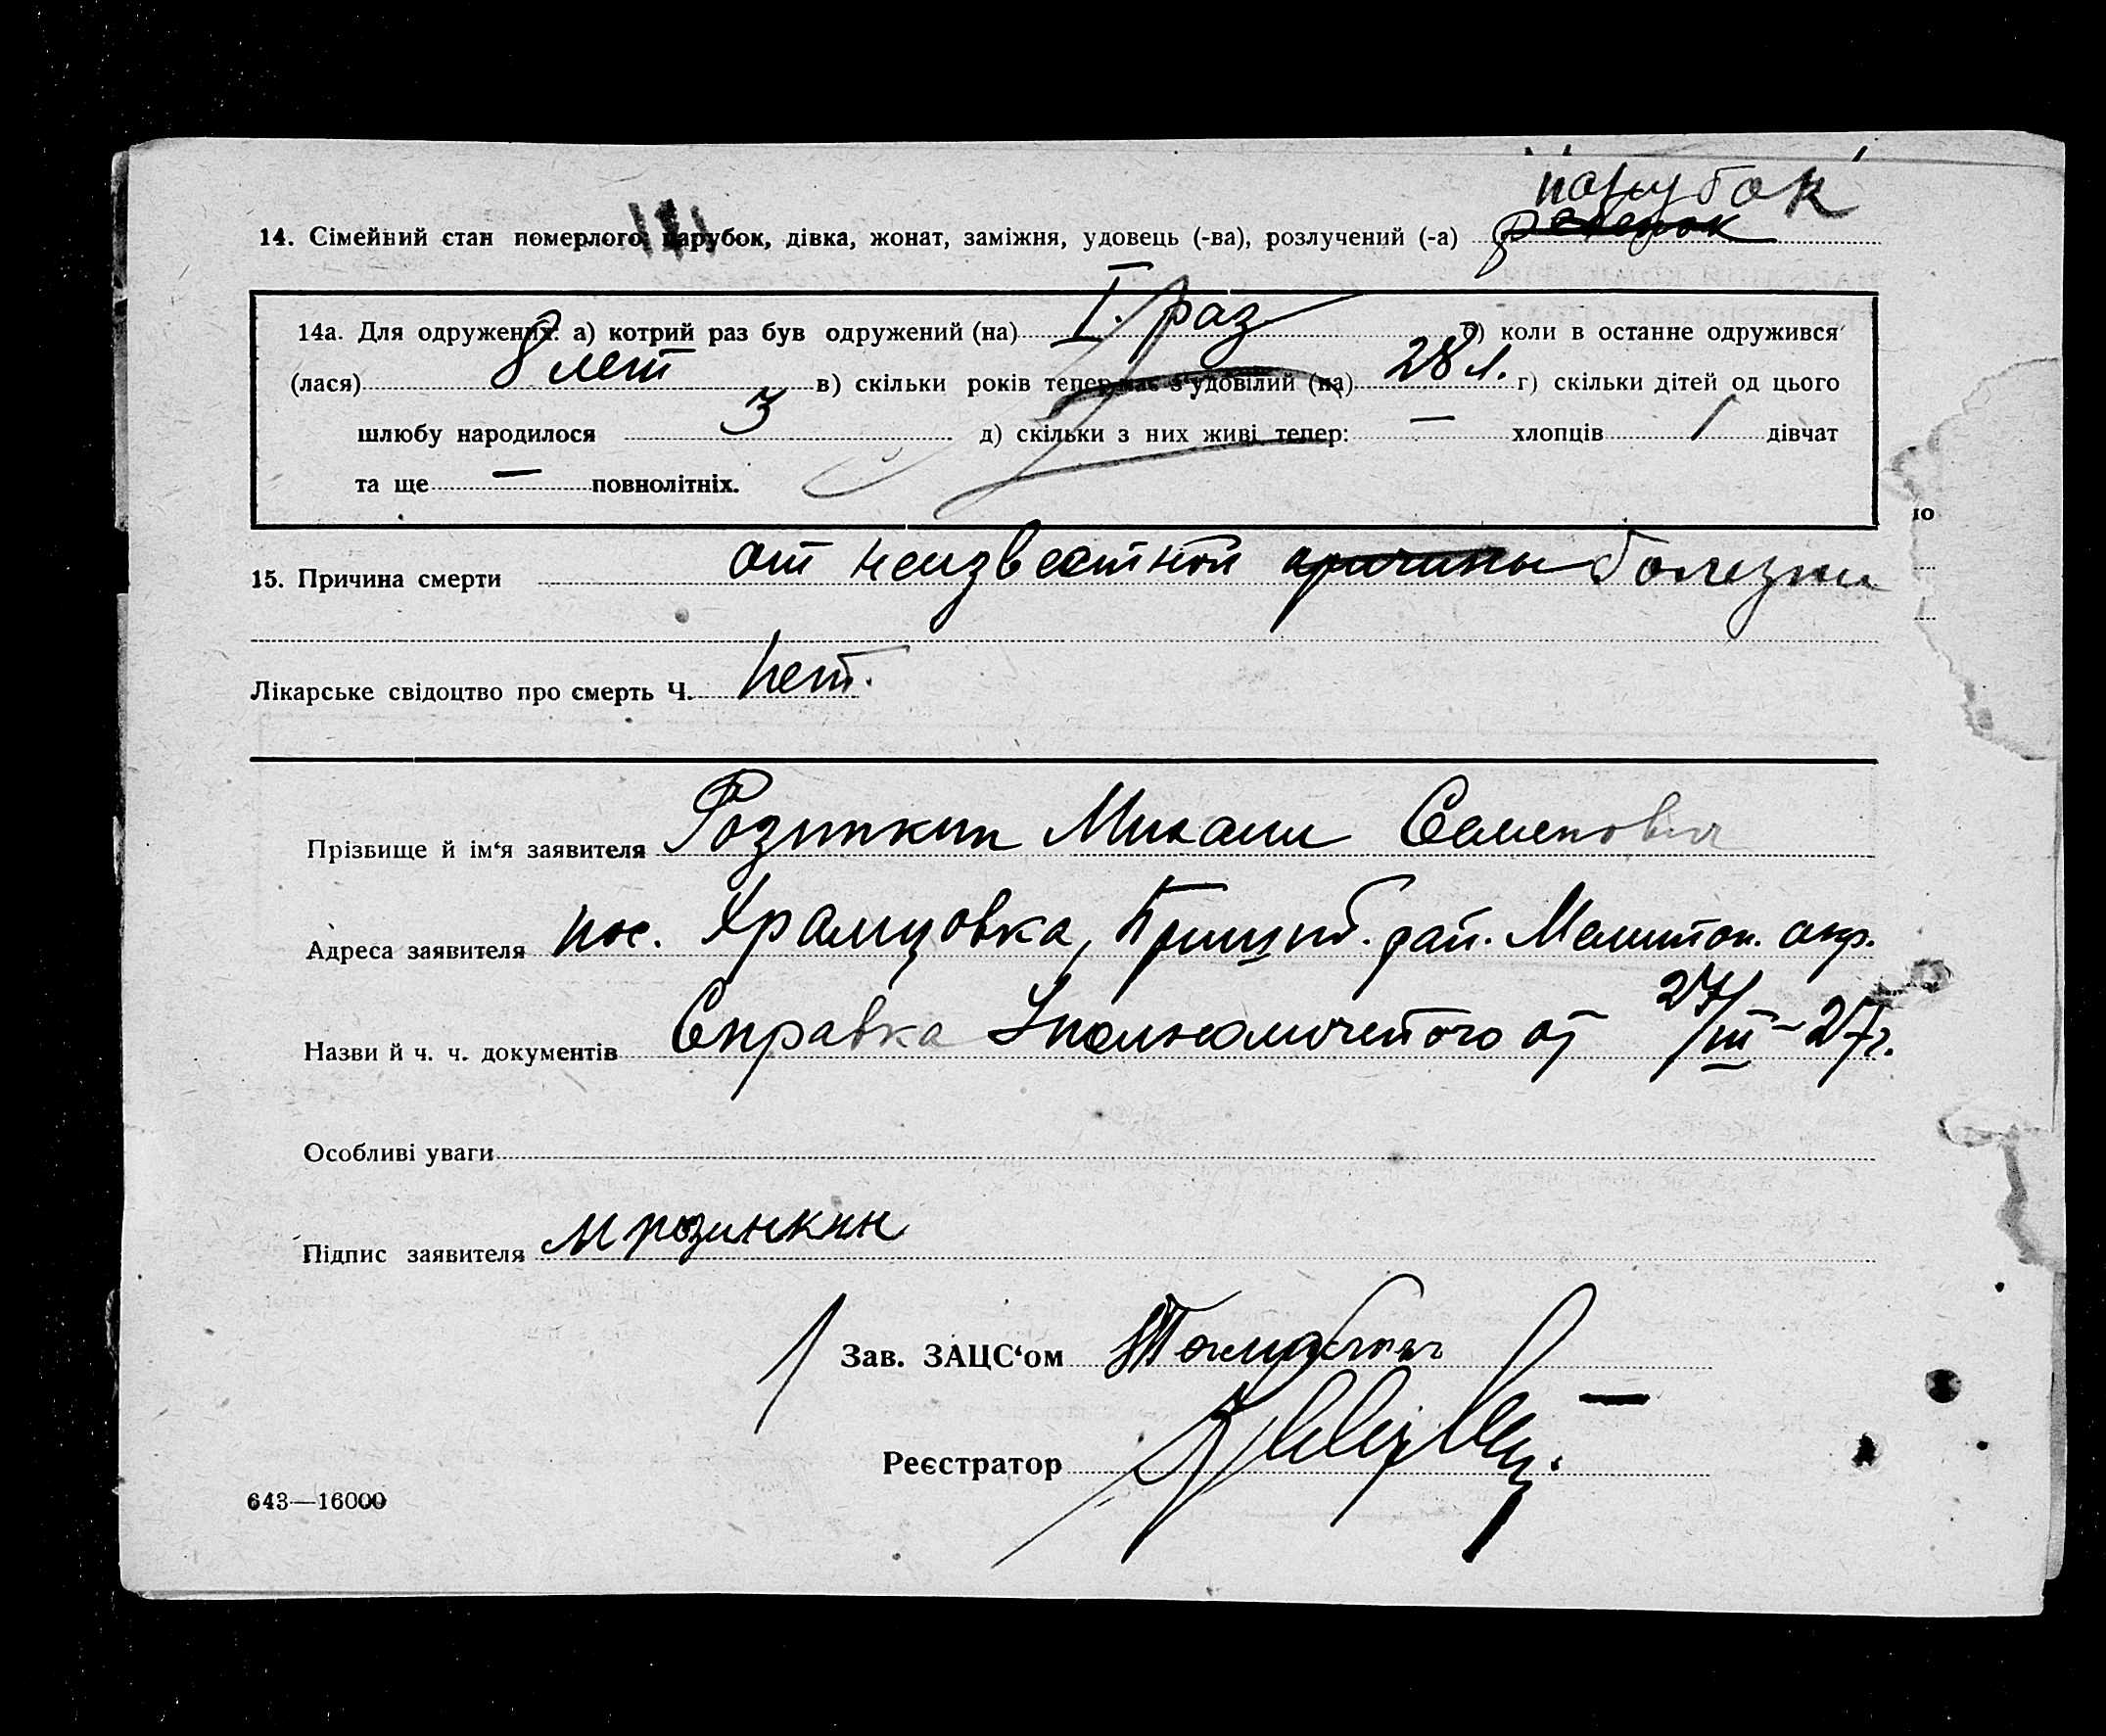 парубок
14. Сімейний стан померлого: парубок, дівка, жонат, заміжня, удовець (-ва), розлучений (-а) ребенок
14а. Для одружених: а) котрий раз був одружений (на) I. раз б) коли в останне одружився
(лася) 8 лет в) скільки років тепер має з'удовілий (на) 28 л. г) скільки дітей од цього
шлюбу народилося 3 д) скільки з них живі тепер: — хлопців 1 дівчат
та ще — повнолітніх.
ю
15. Причина смерти от неизвестной причины болезни
Лікарське свідоцтво про смерть Ч. Нет.
Прізвище й ім‘я заявителя Розинкин Михаил Семенович
Адреса заявителя пос. Храмцовка, Пришиб. рай. Мелитоп. окр.
Назви й ч. ч. документів Справка Уполномоченого от 27/III–27г.
Особливі уваги
Підпис заявителя М розинкин
Зав. ЗАЦС‘ом
Реєстратор
643—16000